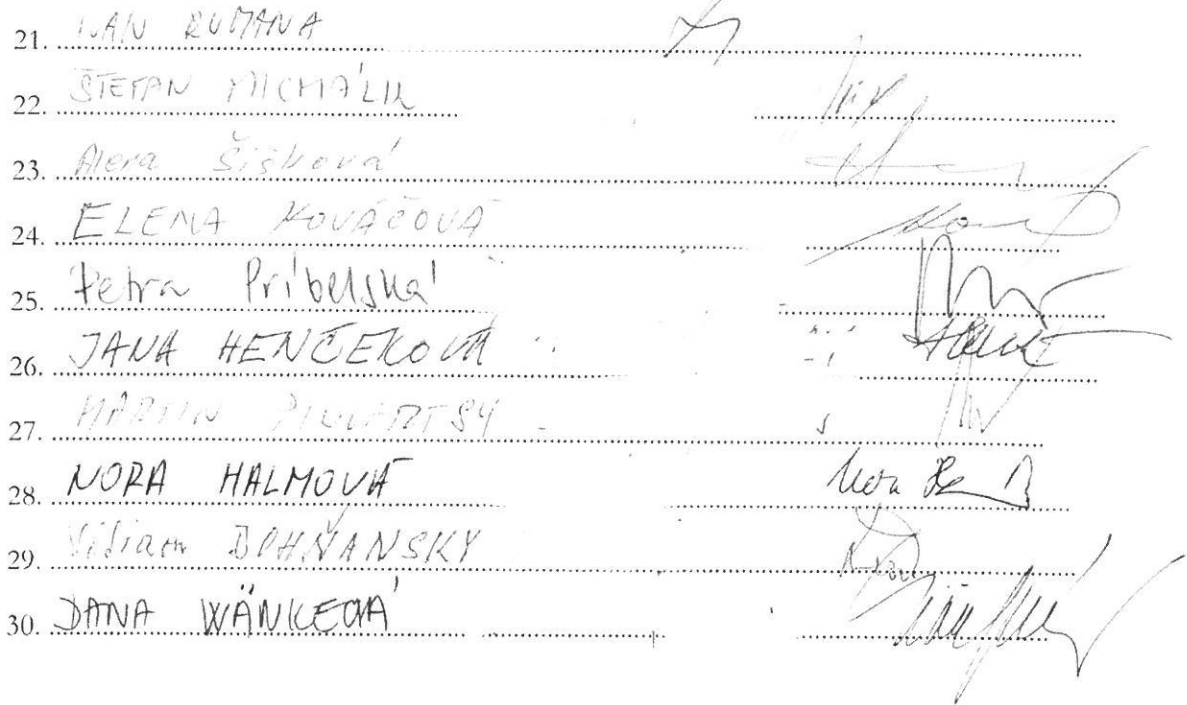 21. IVAN RUMANA
22. ŠTEFAN MICHÁLIK
23. Alena Šišková
24. ELENA KOVÁČOVÁ
25. Petra Príbelská
26. JANA HENČEKOVÁ
27. MARTIN
28. NORA HALMOVÁ
29. Viliam BOHŇANSKÝ
30. DANA